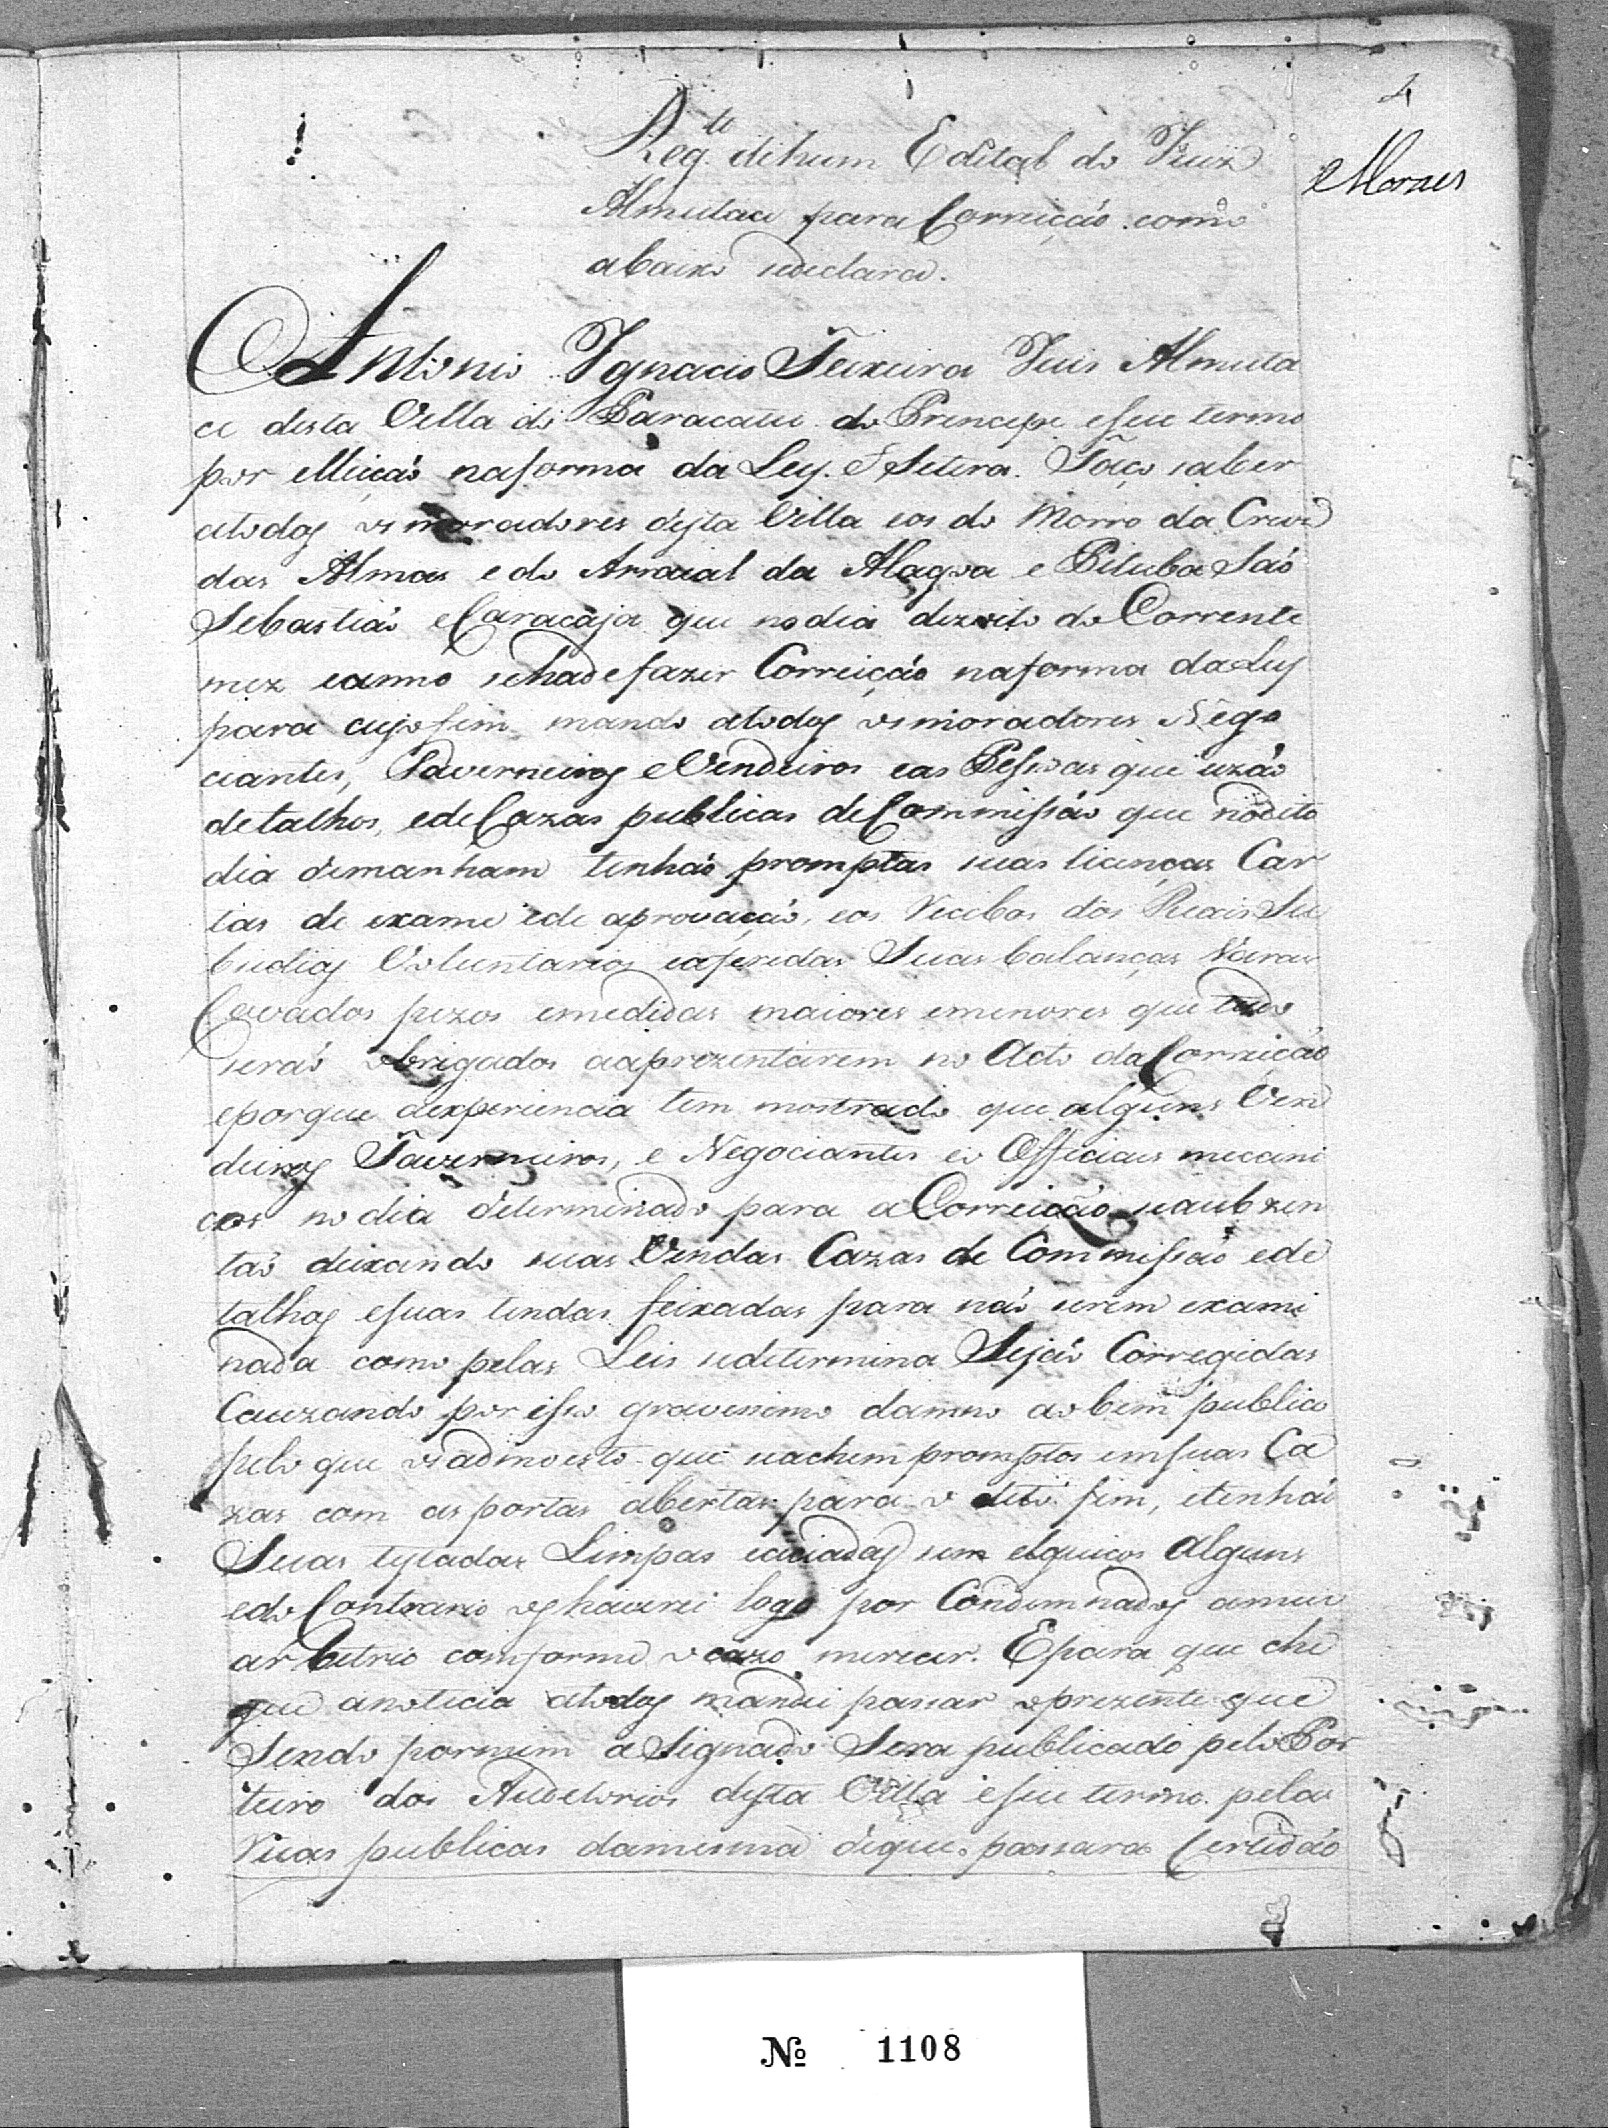 4
Moraes
Reg.to de hum Edital do Juiz
Almutace para Correiçaõ como
abaixo sedeclara.
Antonio Ignacio Teixeira Juis Almuta
ce desta Villa de Paracatu do Principe eseu termo
por elleiçaõ naforma da Ley. Etsetera. Faço saber
atodos os moradores desta Villa eos do Morro da Cruz
das Almas e do Arraial da Alagoa e Pituba Saõ
Sebastiaõ e Caracaja que nodia dezoito do Corrente
mez eanno sehadefazer Correiçaõ naforma da Ley
para cujo fim mando atodos os moradores Nego
ciantes, Taverneiros e Vendeiros eas Pessoas que uzaõ
detalhos, ede Cazas publicas de Commissaõ que nodito
dia demanham tenhaõ promptas suas licenças Car
tas de exame ede aprovaçaõ, eos Recibos dos Reais Su
bcidios Voluntarios eaferidas Suas balanças Varas
Covados pezos emedidas maiores emenores que tudo
seraõ obrigados aaprezentarem no Acto da Correiçaõ
eporque aexperiencia tem mostrado que alguns Ven
deiros Taverneiros, e Negociantes eo Officiais mecani
cos no dia determinado para a Correicaõ seaubzen
taõ deixando suas Vendas Cazas de Commissaõ ede
talhos esuas tendas feixadas para naõ serem exami
nada como pelas Leis sedetermina Sejaõ Corregidas
Cauzando por isso gravissimo damno ao bem publico
pelo que os admoesto que seachem promptos emsuas Ca
zas com as portas abertas para o dito fim, etenhaõ
Suas testadas Limpas easeiadas sem elquicos Alguns
edo Contrario os haverei logo por Condemnados ameu
arbitrio comforme o cazo merecer. Epara que che
gue anoticia atodos mandei passar oprezente que
Sendo pormim aSignado Sera publicado pelo Por
teiro dos Auditorios desta Villa eseu termo pelas
Ruas publicas damesma deque passara Certidaõ
№ 1108